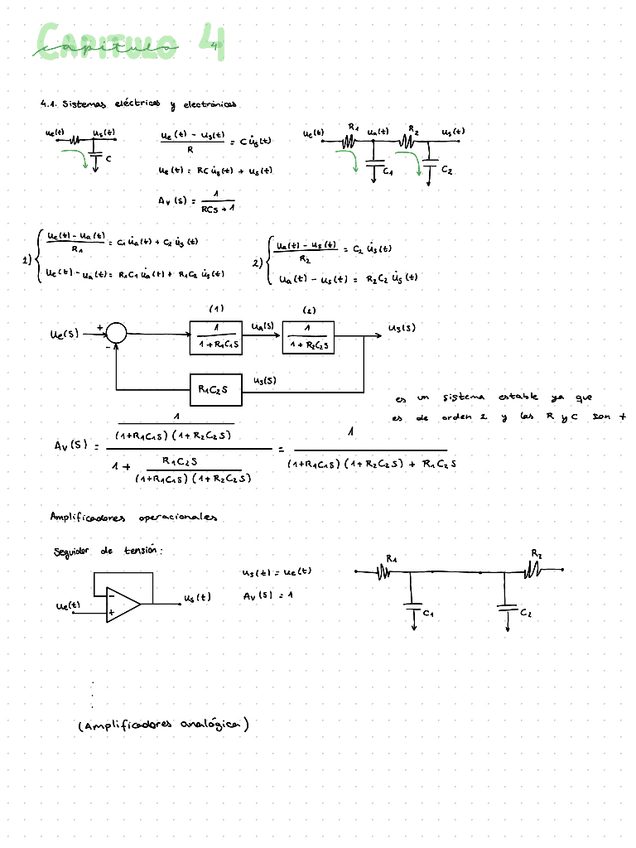 CAPITULO 4
capitulo 4
4.1. Sistemas eléctricos y electrónicos
ue(t) us(t) C
(ue(t) - us(t)) / R = C u̇s(t)
ue(t) = RC u̇s(t) + us(t)
Av(s) = 1 / (RCs + 1)
ue(t) R1 ua(t) R2 us(t)
C1 C2
1) { (ue(t) - ua(t)) / R1 = C1 u̇a(t) + C2 u̇s(t)
ue(t) - ua(t) = R1C1 u̇a(t) + R1C2 u̇s(t)
2) { (ua(t) - us(t)) / R2 = C2 u̇s(t)
ua(t) - us(t) = R2C2 u̇s(t)
(1) (2)
Ue(s) + - 1 / (1 + R1C1s) Ua(s) 1 / (1 + R2C2s) Us(s)
R1C2s Us(s)
es un sistema estable ya que
es de orden 2 y las R y C son +
Av(s) = (1 / ((1+R1C1s)(1+R2C2s))) / (1 + R1C2s / ((1+R1C1s)(1+R2C2s))) = 1 / ((1+R1C1s)(1+R2C2s) + R1C2s)
Amplificadores operacionales
Seguidor de tensión:
ue(t) - + us(t)
us(t) = ue(t)
Av(s) = 1
R1 R2
C1 C2
(Amplificadores analógica)